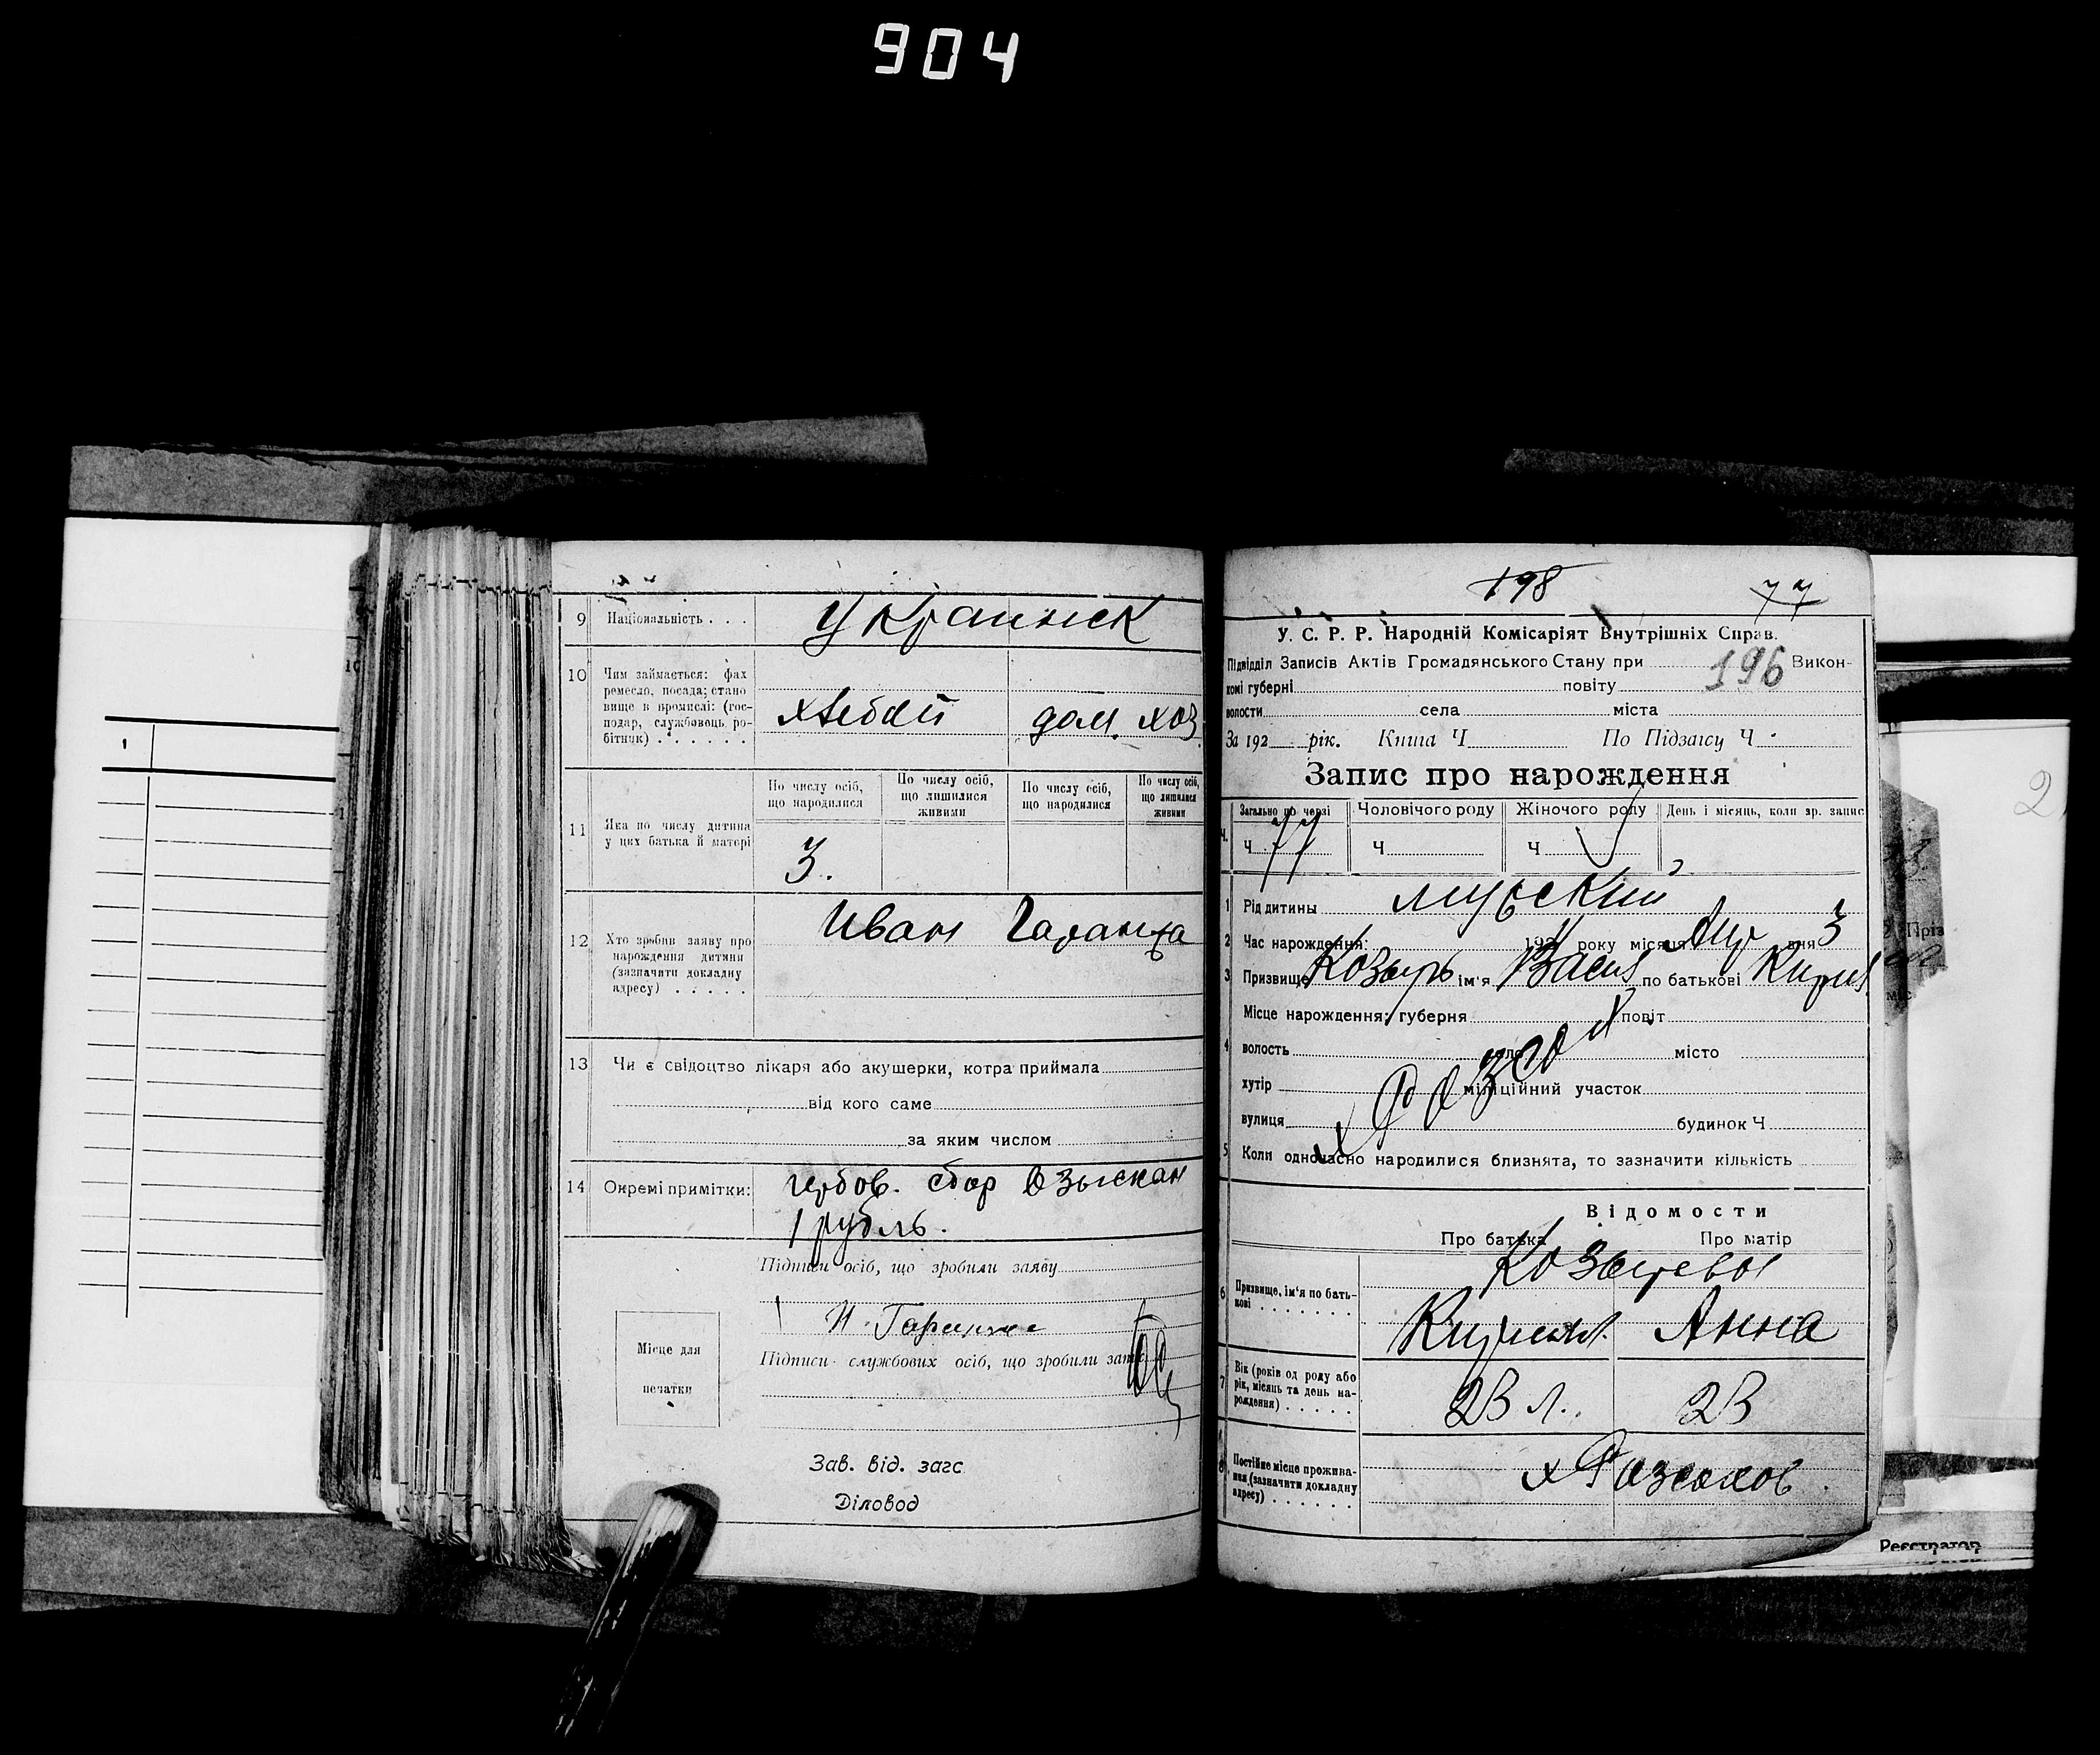 904
9 Національність . . . Украинск
10 Чим займається: фах
ремесло, посада; стано
вище в промислі: (гос-
подар, службовець, ро-
бітник) . . . . . .
хлебоп дом. хоз.
11 Яка по числу дитина
у цих батька й матері
По числу осіб,
що народилися
По числу осіб,
що лишилися
живими
По числу осіб,
що народилися
По числу осіб,
що лишилися
живими
3.
12 Хто зробив заяву про
нарождення дитини
(зазначити докладну
адресу) . . . . .
Иван Гаранжа
13 Чи є свідоцтво лікаря або акушерки, котра приймала
від кого саме
за яким числом
14 Окремі примітки: гербов. сбор взыскан
1 рубль.
Підписи осіб, що зробили заяву
И. Гаранжа
Місце для
печатки
Підписи службових осіб, що зробили запис
Зав. від. загс
Діловод
198 77
У. С. Р. Р. Народній Комісаріят Внутрішніх Справ.
Підвідділ Записів Актів Громадянського Стану при 196 Викон-
комі губерні повіту
волости села міста
За 192 рік. Книга Ч По Підзагсу Ч
Запис про нарождення
Ч. Загально по черзі Чоловічого роду Жіночого роду День і місяць, коли зр. запис
Ч 77 Ч Ч
1 Рід дитины мужский
2 Час нарождення: 192 року місяця дня 3
3 Призвище Козырь ім'я Васил по батькові Кирил
Місце нарождення: губерня повіт
4 волость село місто
хутір міліційний участок
вулиця будинок Ч
5 Коли одночасно народилися близнята, то зазначити кількість
Відомости
Про батька Про матір
6 Призвище, ім'я по бать-
кові . . . . . . .
Козыревы
Кирилл. Анна
7 Вік (років од роду або
рік, місяць та день на-
рождення) . . . . .
23 л. 23
8 Постійне місце прожива-
ння (зазначити докладну
адресу) . . . . . .
Реєстратор